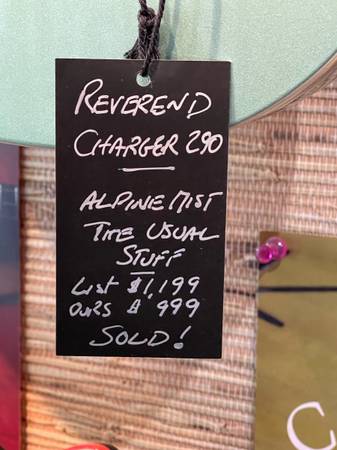 REVEREND
CHARGER 290
ALPINE MIST
THE USUAL
STUFF
LIST $1,199
OURS $ 999
SOLD!
C